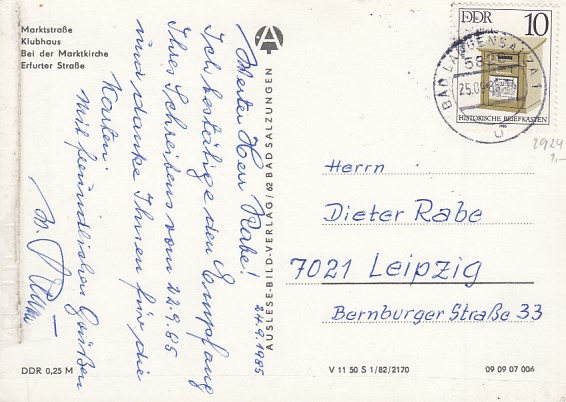 Marktstraße
Klubhaus
Bei der Marktkirche
Erfurter Straße
Werter Herr Rabe!
24.9.1985
Ich bestätige den Empfang
Ihres Schreibens vom 22.9.85
und danke Ihnen für die
Karten.
Mit freundlichen Grüßen
A
AUSLESE-BILD-VERLAG/62 BAD SALZUNGEN
DDR 10
HISTORISCHE BRIEFKASTEN
BAD LANGENSALZA 1
582
25.09.85
u
2924
1,-
Herrn
Dieter Rabe
7021 Leipzig
Bernburger Straße 33
DDR 0,25 M
V 11 50 S 1/82/2170
09 09 07 006